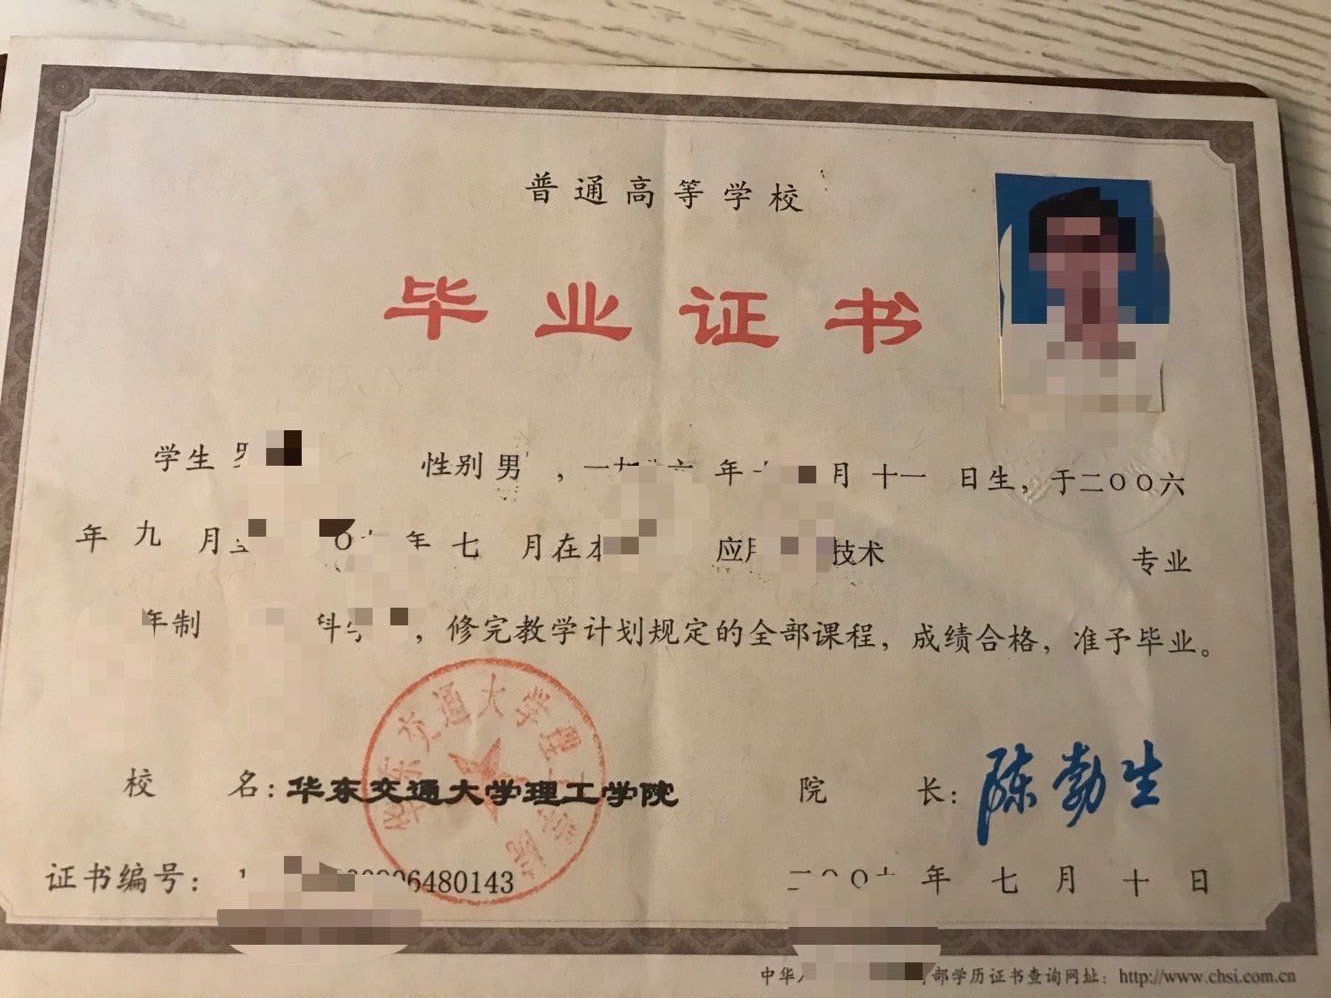 普通高等学校
毕业证书
学生 性别 男 , 一九 年 月 十一 日生, 于二〇〇六
年 九 月 〇 年 七 月在本 应用 技术 专业
年制 科 , 修完教学计划规定的全部课程, 成绩合格, 准予毕业。
华东交通大学理工学院
校 名: 华东交通大学理工学院 院 长: 陈勃生
证书编号: 06480143 二〇〇 年 七 月 十 日
中华 部学历证书查询网址: http://www.chsi.com.cn